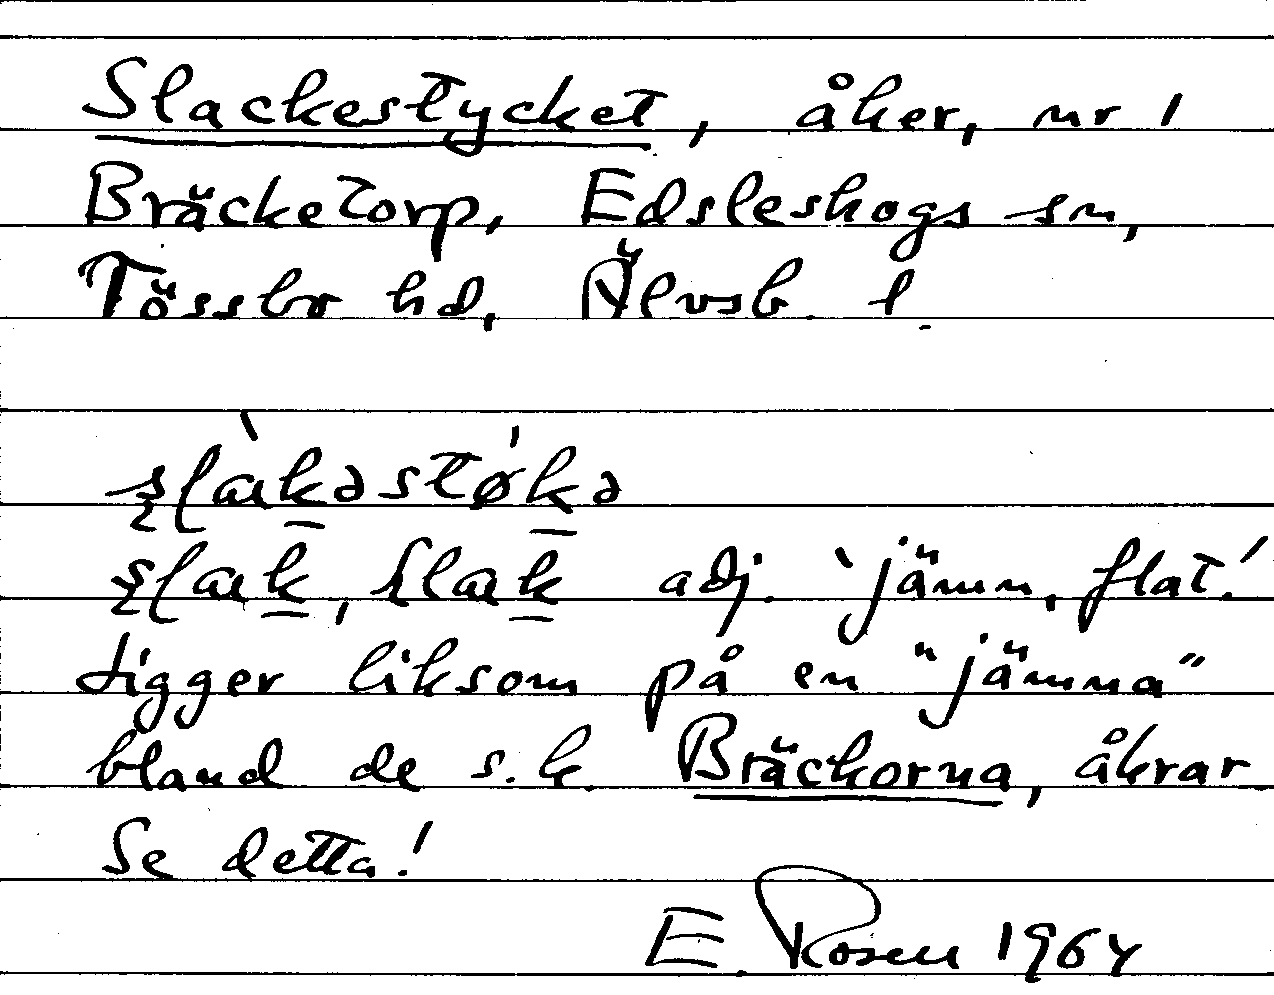 Slackestycket, åker, nr 1
Bräcketorp, Edsleskogs sn,
Tössbo hd, Älvsb. l.
jämn, flat.'
adj.
ligger liksom på en "jämna"
bland de s.k. Bräckorna, åkrar.
Se detta!
E. Rosen 1964